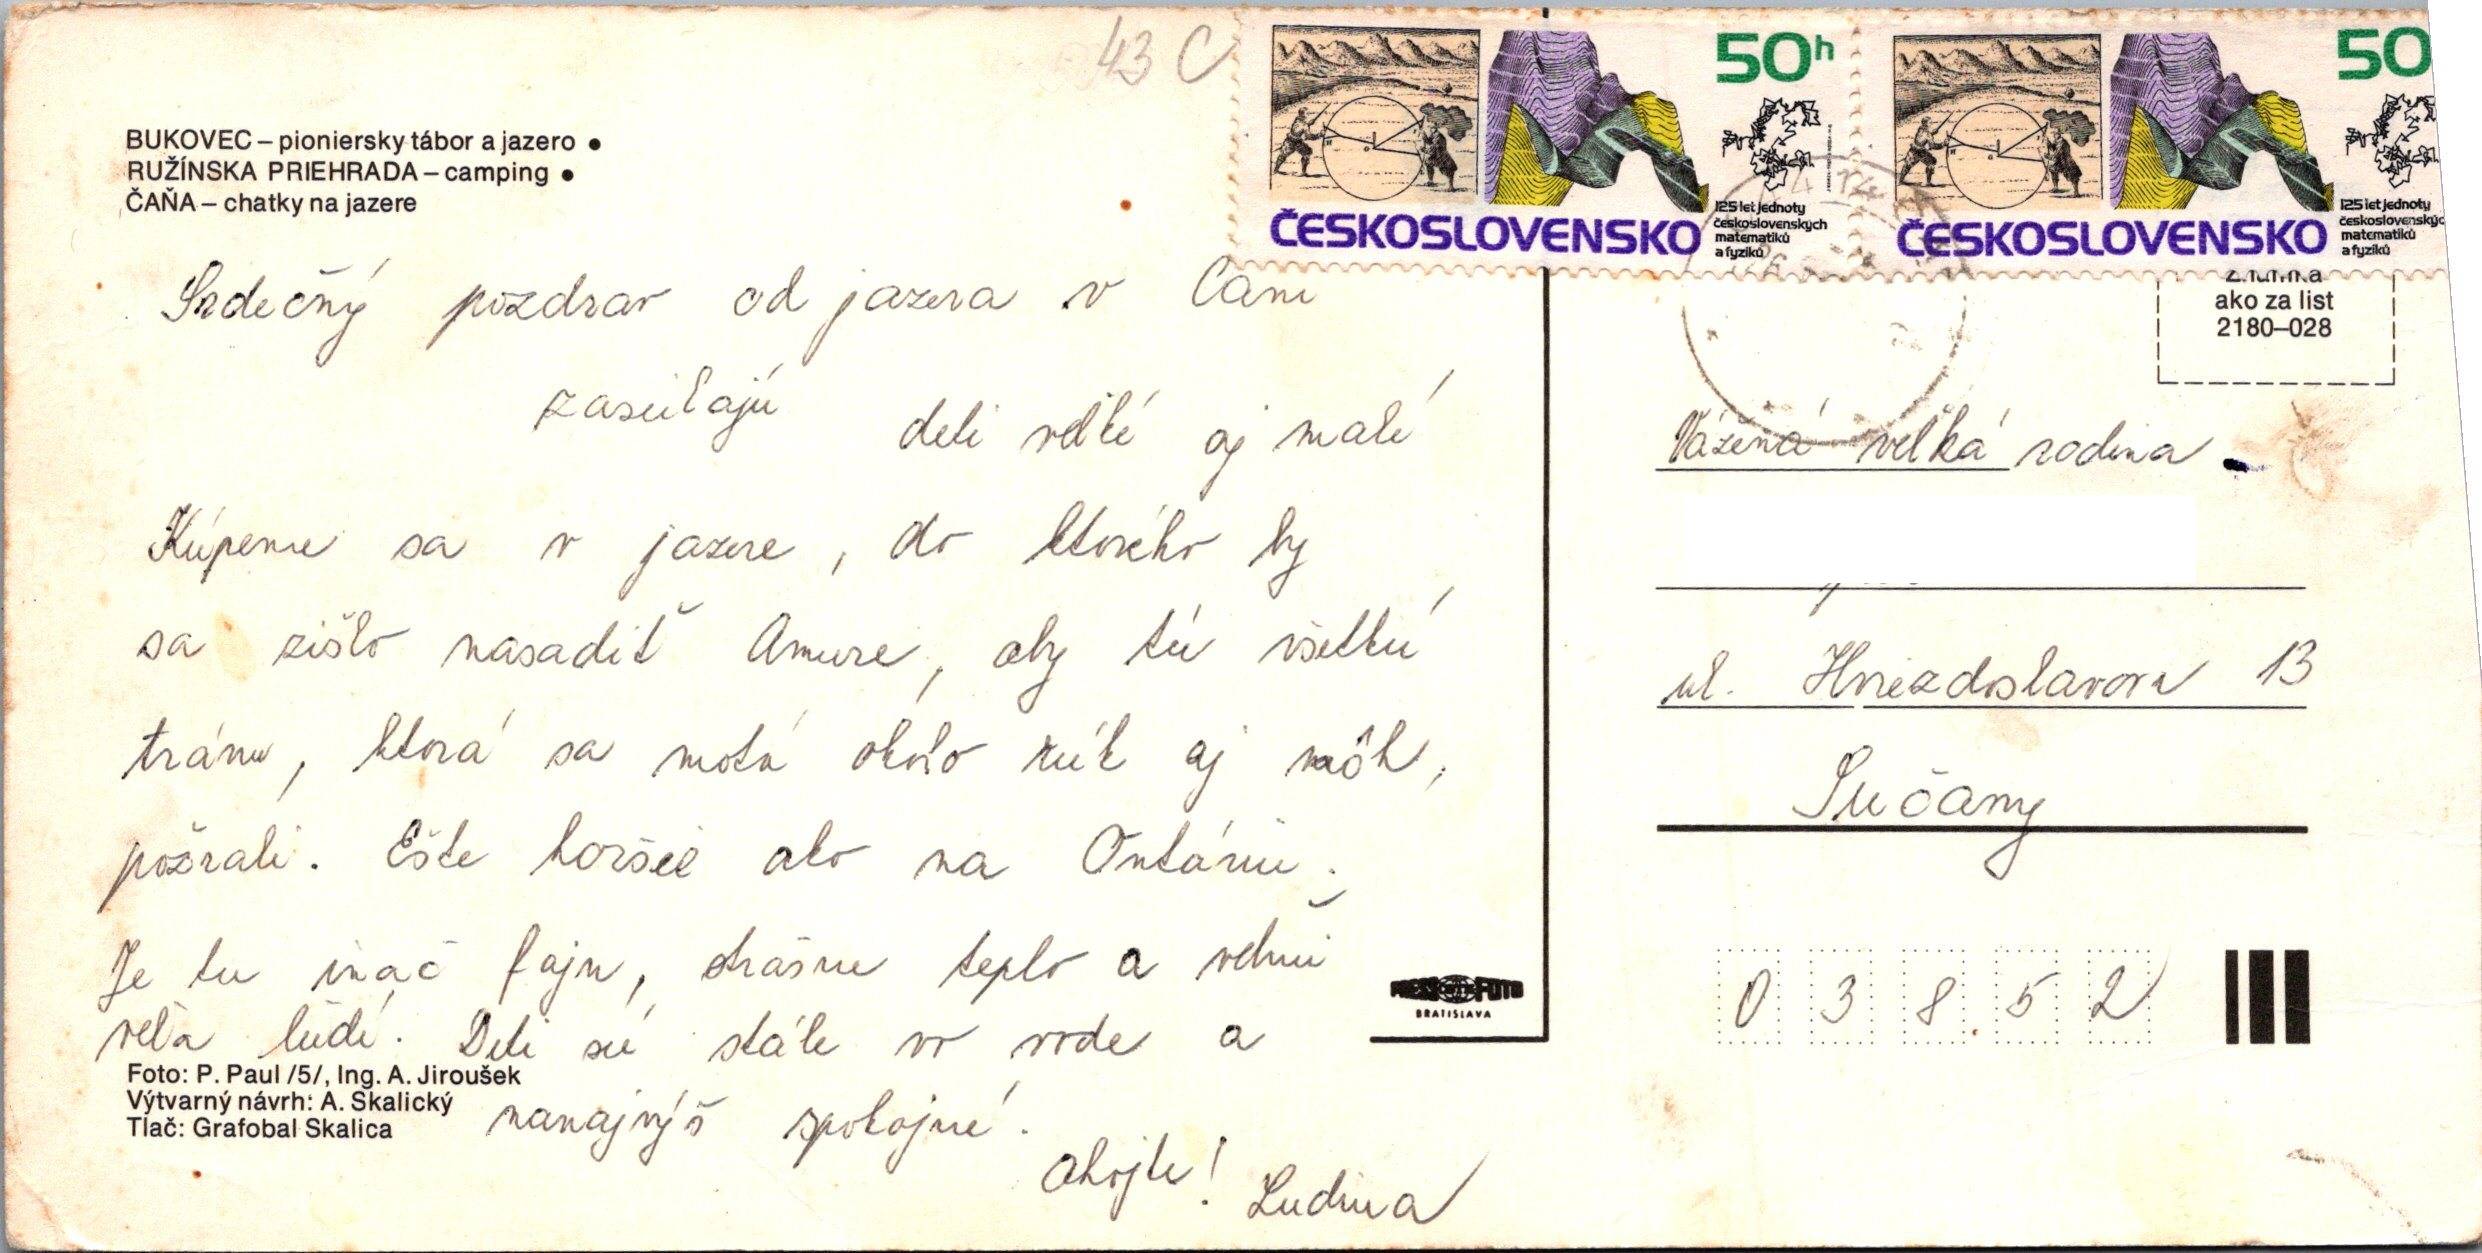 43 C
50h
50
125 let jednoty
československých
matematiků
a fyziků
ČESKOSLOVENSKO
125 let jednoty
československýc
matematiků
a fyziků
ČESKOSLOVENSKO
BUKOVEC – pioniersky tábor a jazero •
RUŽÍNSKA PRIEHRADA – camping •
ČAŇA – chatky na jazere
Srdečný pozdrav od jazera v Čani
zasielajú deti veľké aj malé
Kúpeme sa v jazere, do ktorého by
sa zišlo nasadiť Amure, aby tú všetku
trávu, ktorá sa motá okolo rúk aj nôh,
požrali. Ešte horšie ako na Ontáriu.
Je tu ináč fajn, strašne teplo a veľmi
veľa ľudí. Deti sú stále vo vode a
nanajvýš spokojné.
Ahojte! Ludma
Foto: P. Paul /5/, Ing. A. Jiroušek
Výtvarný návrh: A. Skalický
Tlač: Grafobal Skalica
PRESSFOTO
BRATISLAVA
ako za list
2180–028
Vážená veľká rodina
ul. Hviezdoslavova 13
Sučany
0 3 8 5 2